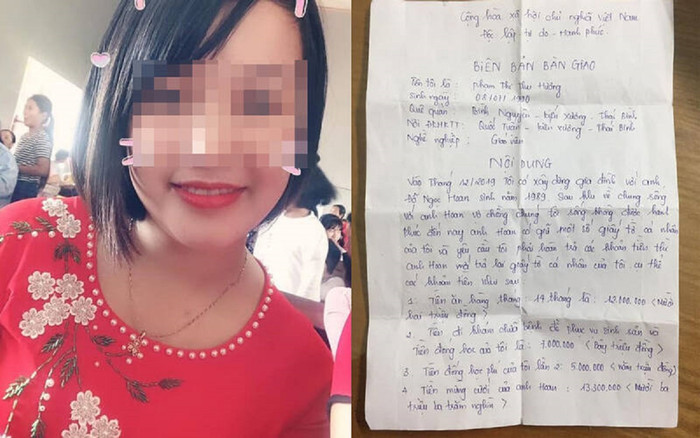 Cộng hòa xã hội chủ nghĩa Việt Nam
Độc lập tự do - Hạnh phúc
BIÊN BẢN BÀN GIAO
Tên tôi là : Phạm Thị Thu Hường
Sinh ngày : 08/07/1990
Quê quán : Bình Nguyên - Kiến Xương - Thái Bình
Nơi ĐKHKTT : Quốc Tuấn - Kiến Xương - Thái Bình
Nghề nghiệp : Giáo viên
NỘI DUNG
Vào Tháng 12/2019 Tôi có xây dựng gia đình với anh
Đỗ Ngọc Hoan sinh năm 1989. Sau khi về chung sống
với anh Hoan vợ chồng chúng tôi sống không được hạnh
phúc đến nay anh Hoan có giữ một số giấy tờ cá nhân
của tôi và yêu cầu tôi phải hoàn trả các khoản tiền thì
anh Hoan mới trả lại giấy tờ cá nhân của tôi cụ thể
các khoản tiền như sau
1. Tiền ăn hàng tháng 14 tháng là : 12.000.000 < Mười
hai triệu đồng >
2. Tiền đi khám chữa bệnh để phục vụ sinh sản và
Tiền đóng học của tôi là : 7.000.000 < bảy triệu đồng >
3. Tiền đóng học phí của tôi lần 2 : 5.000.000 < năm triệu đồng >
4. Tiền mừng cưới của anh Hoan : 13.300.000 < Mười ba
triệu ba trăm nghìn >